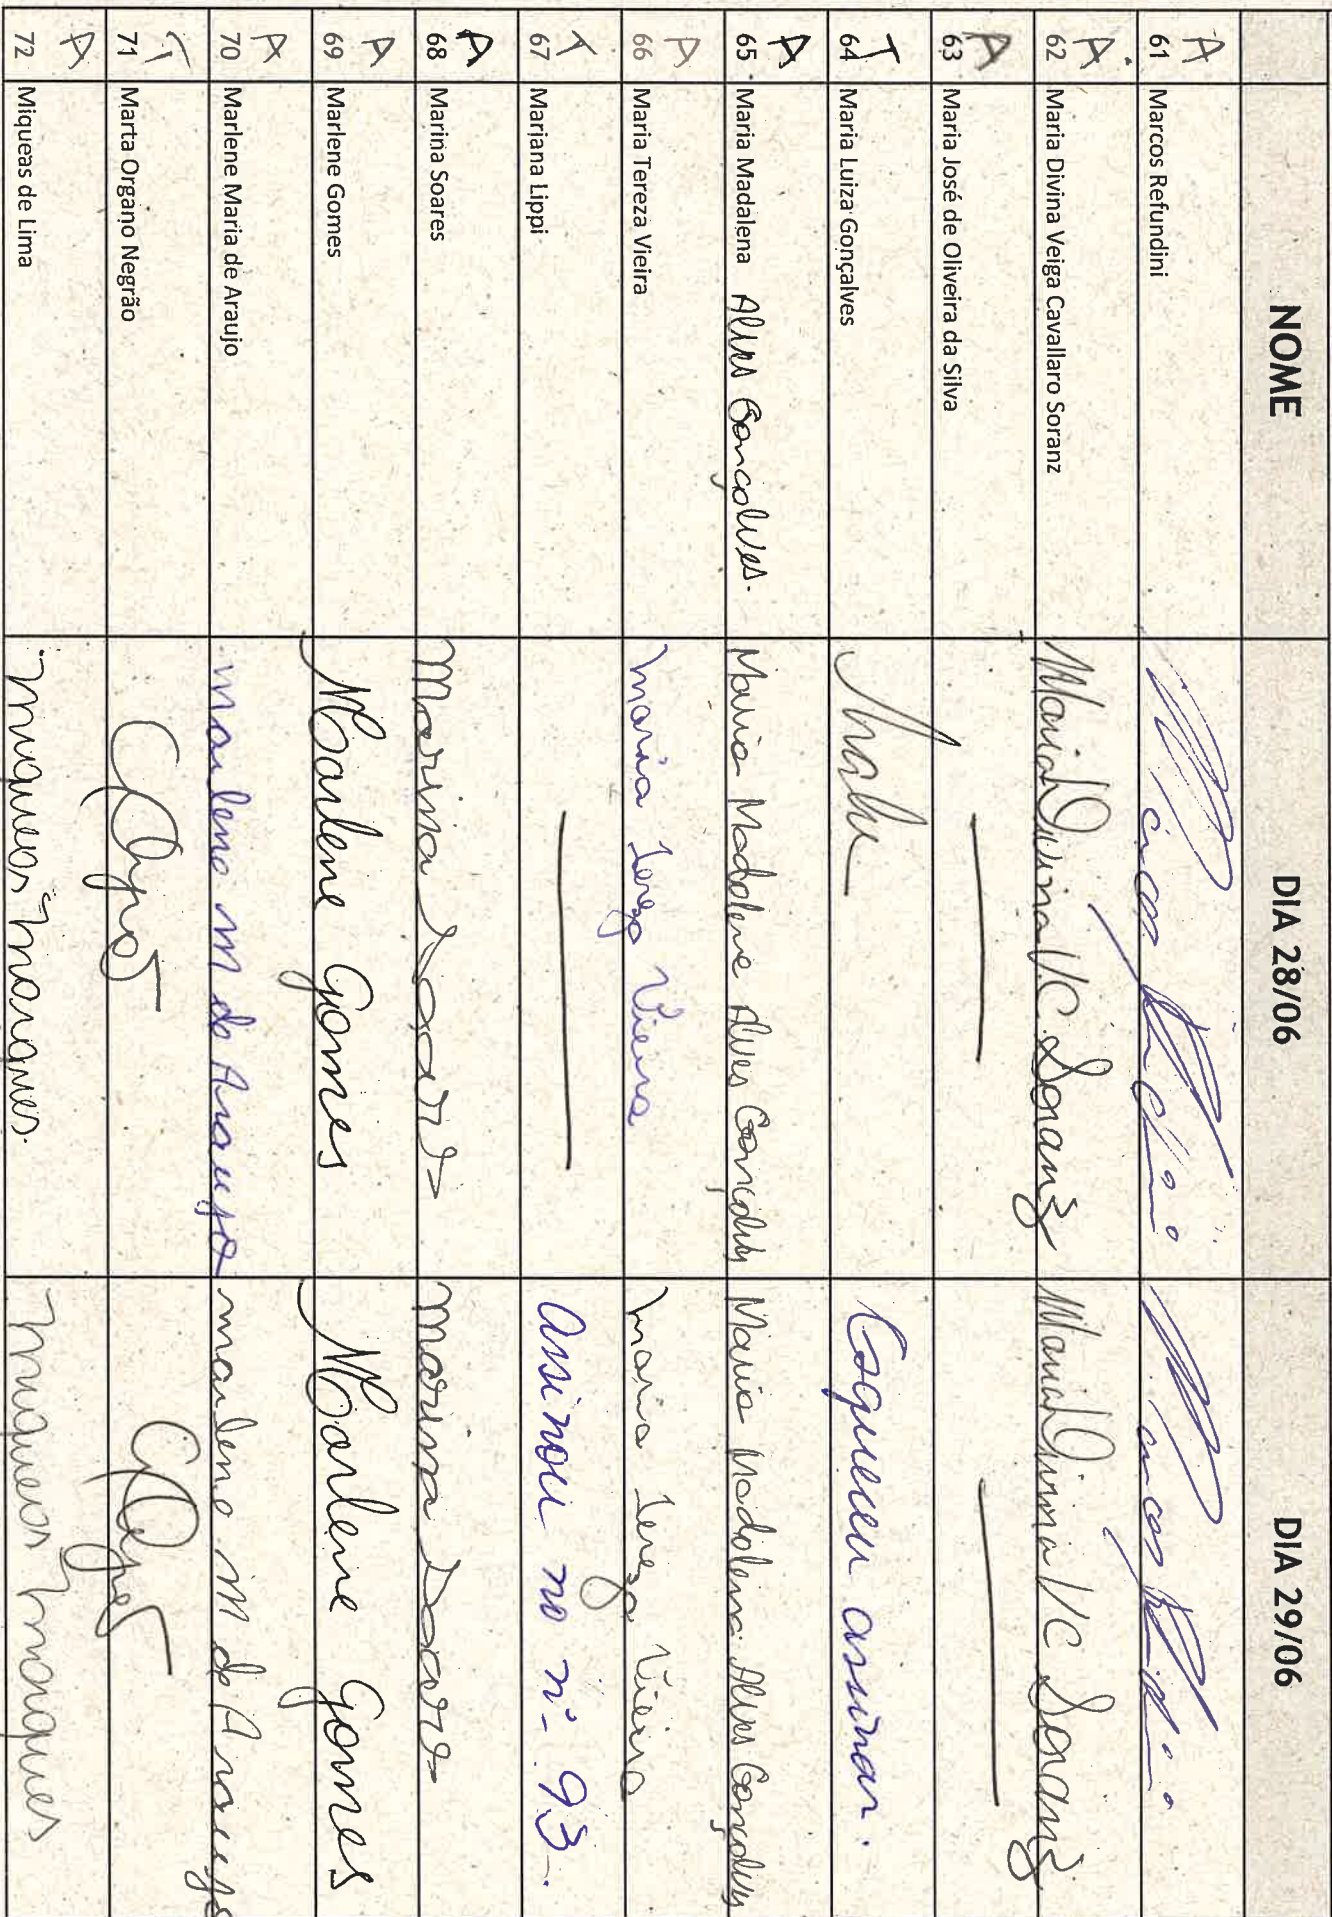 NOME DIA 28/06 DIA 29/06
61 A Marcos Refundini
62 A Maria Divina Veiga Cavallaro Soranz Maria Divina V C Soranz Maria Divina V C Soranz
63 A Maria José de Oliveira da Silva
64 T Maria Luiza Gonçalves Esqueceu assinar.
65 A Maria Madalena Alves Gonçalves. Maria Madalena Alves Gonçalves Maria Madalena Alves Gonçalves
66 A Maria Tereza Vieira Maria Tereza Vieira Maria Tereza Vieira
67 T Mariana Lippi Assinou no nº 93.
68 A Marina Soares Marina Soares Marina Soares
69 A Marlene Gomes Marlene Gomes Marlene Gomes
70 A Marlene Maria de Araujo marlene m de Araujo marlene m de Araujo
71 T Marta Organo Negrão
72 A Miqueas de Lima Miqueas Marques. Miqueas Marques